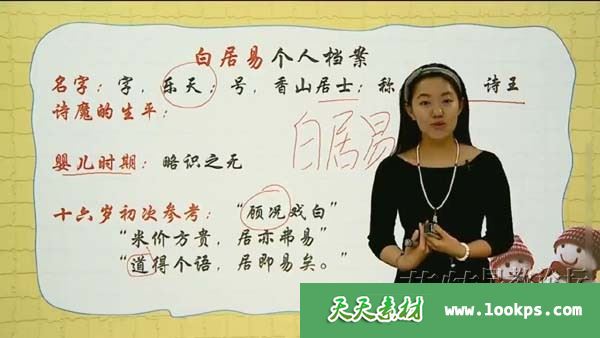 白居易个人档案
名字：字，乐天；号，香山居士；称 诗王
诗魔的生平：
白居易
婴儿时期：略识之无
十六岁初次参考：“顾况戏白”
“米价方贵，居亦弗易”
“道得个语，居即易矣。”
天天素材 www.lookps.com